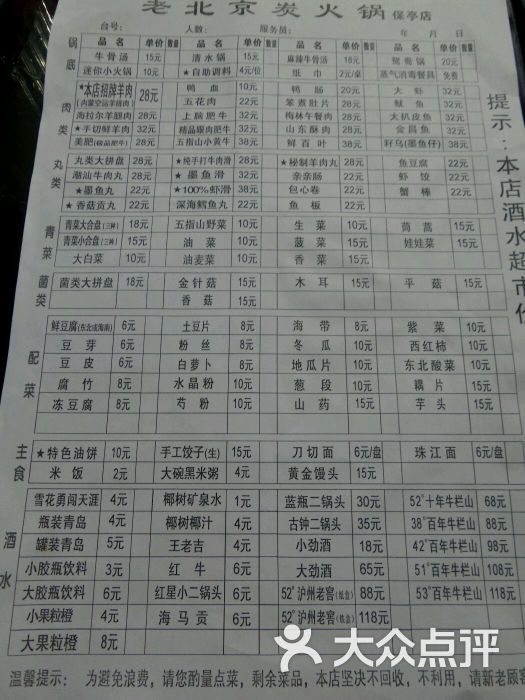 老北京炭火锅 保亭店
台号: 人数: 服务员: 年 月 日
锅底 品名 单价 数量 品名 单价 数量 品名 单价 数量 品名 单价 数量
牛骨汤 15元 清水锅 15元 麻辣牛骨汤 18元 鸳鸯锅 20元
迷你小火锅 10元 ★自助调料 4元/位 纸巾 2元/桌 蒸气消毒餐具 免费
肉类
★本店招牌羊肉(内蒙空运羊排肉) 28元 鸭血 10元 鸭肠 20元 大虾 32元
海拉尔羊腿肉 28元 五花肉 22元 笨煮肚片 28元 鱿鱼 28元
★手切鲜羊肉 32元 上脑肥牛 32元 梅林午餐肉 28元 大扒皮鱼 32元
美肥(极品肥牛) 28元 精品眼肉肥牛 32元 山东酥肉 28元 金昌鱼 32元
五指山小黄牛 38元 鲜百叶 38元 籽乌(墨鱼仔) 38元
丸类
丸类大拼盘 28元 ★纯手打牛肉滑 28元 ★秘制羊肉丸 28元 鱼豆腐 22元
潮汕牛肉丸 28元 ★墨鱼滑 28元 亲亲肠 22元 虾饺 22元
★墨鱼丸 22元 ★100%虾滑 38元 包心卷 22元 蟹棒 22元
★香菇贡丸 22元 深海鳕鱼丸 22元 鱼板 22元
青菜
青菜大合盘(三种) 18元 五指山野菜 10元 生菜 10元 茼蒿 15元
青菜小合盘(三种) 15元 油菜 10元 菠菜 15元 娃娃菜 15元
大白菜 10元 油麦菜 10元 香菜 10元
菌类
菌类大拼盘 18元 金针菇 15元 木耳 15元 平菇 15元
香菇 15元
配菜
鲜豆腐(东北或海南) 6元 土豆片 8元 海带 8元 紫菜 10元
豆芽 6元 粉丝 8元 冬瓜 10元 西红柿 10元
豆皮 6元 白萝卜 8元 地瓜片 10元 东北酸菜 10元
腐竹 8元 水晶粉 10元 葱段 10元 藕片 15元
冻豆腐 8元 芍粉 10元 山药 15元 芋头 15元
主食
★特色油饼 10元 手工饺子(生) 15元 刀切面 6元/盘 珠江面 6元/盘
米饭 2元 大碗黑米粥 4元 黄金馒头 15元
酒水
雪花勇闯天涯 4元 椰树矿泉水 1元 蓝瓶二锅头 30元 52°十年牛栏山 68元
瓶装青岛 4元 椰树椰汁 4元 古钟二锅头 35元 38°百年牛栏山 88元
罐装青岛 5元 王老吉 4元 小劲酒 18元 42°百年牛栏山 98元
小胶瓶饮料 3元 红牛 6元 大劲酒 65元 51°百年牛栏山 108元
大胶瓶饮料 6元 红星小二锅头 6元 52°泸州老窖(纸盒) 88元 53°百年牛栏山 118元
小果粒橙 4元 海马贡 6元 52°泸州老窖(铁盒) 118元
大果粒橙 8元
温馨提示: 为避免浪费,请您酌量点菜,剩余菜品,本店坚决不回收,不利用,请新老顾客
提示:本店酒水超市价
大众点评